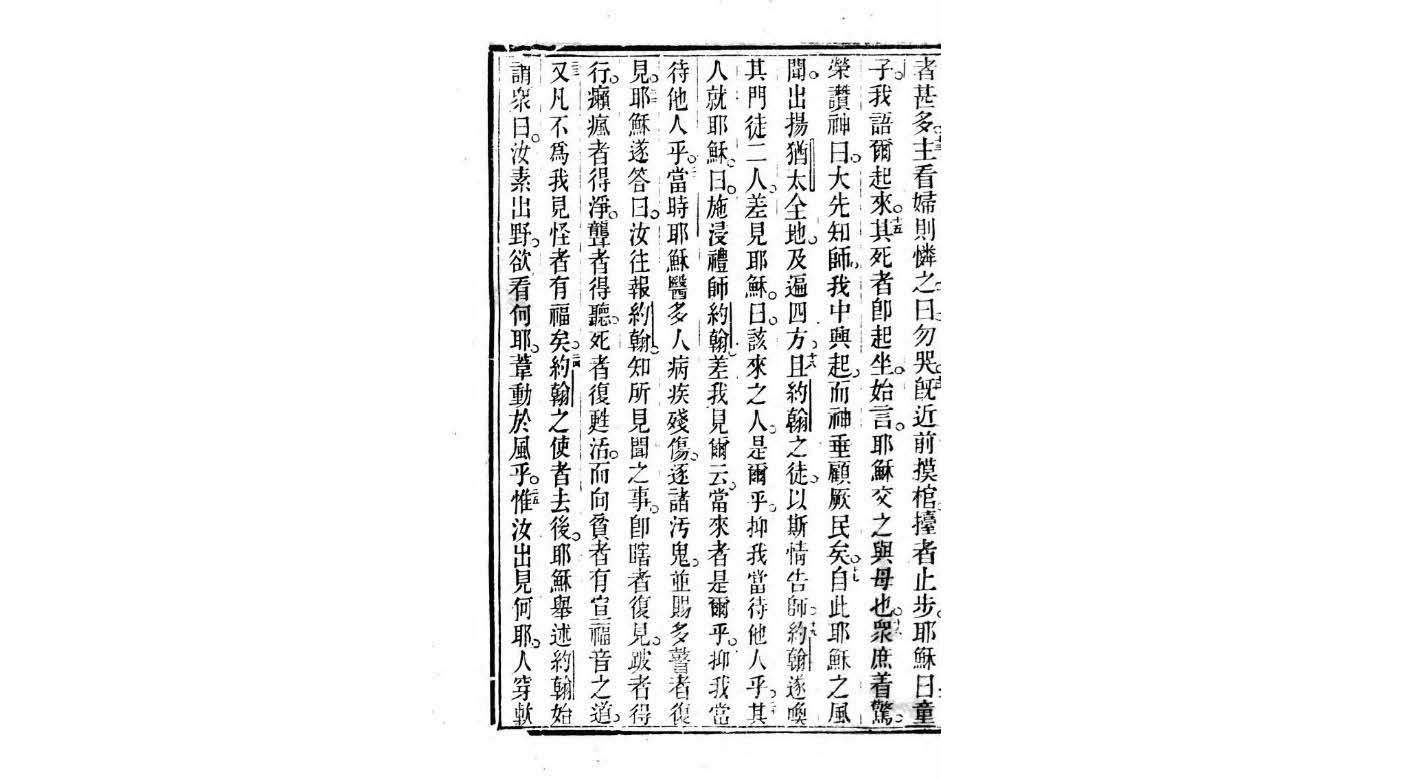 者甚多。十三主看婦則憐之曰。勿哭。十四旣近前摸棺。擡者止步。耶穌曰。童
子。我語爾起來。十五其死者卽起坐。始言。耶穌交之與母也。十六衆庶着驚。
榮讚神曰。大先知師。我中興起。而神垂顧厥民矣。十七自此耶穌之風
聞。出揚猶太全地。及遍四方。十八且約翰之徒。以斯情告師。十九約翰遂喚
其門徒二人。差見耶穌。曰。該來之人。是爾乎。抑我當待他人乎。二十其
人就耶穌。曰。施浸禮師約翰。差我見爾云。當來者是爾乎。抑我當
待他人乎。當時耶穌醫多人病疾殘傷。逐諸汚鬼。並賜多瞽者復
見。耶穌遂答曰。汝往報約翰。知所見聞之事。卽瞎者復見。跛者得
行。癩瘋者得淨。聾者得聽。死者復甦活。而向貧者有宣福音之道。
又凡不爲我見怪者有福矣。約翰之使者去後。耶穌舉述約翰。始
謂衆曰。汝素出野。欲看何耶。葦動於風乎。惟汝出見何耶。人穿軟